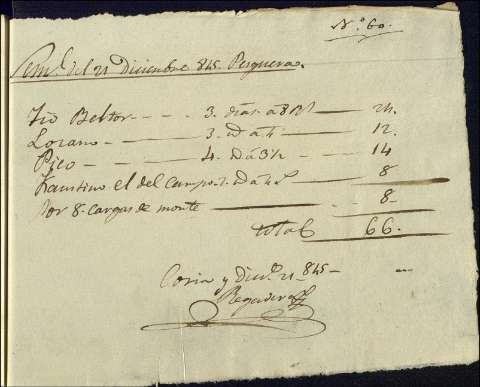 Nº. 60.
Semª. del 21 Diciembre 845. Pesqueras.
Tio Beltor 3. dias a 8 Rˢ 24.
Lozano 3. id a 4 12.
Pico 4. id a 3½ 14
Faustino el del Campo 2. id a 4 8
Por 8 cargas de monte 8
total 66.
Coria y Dicᵉ. 21 845